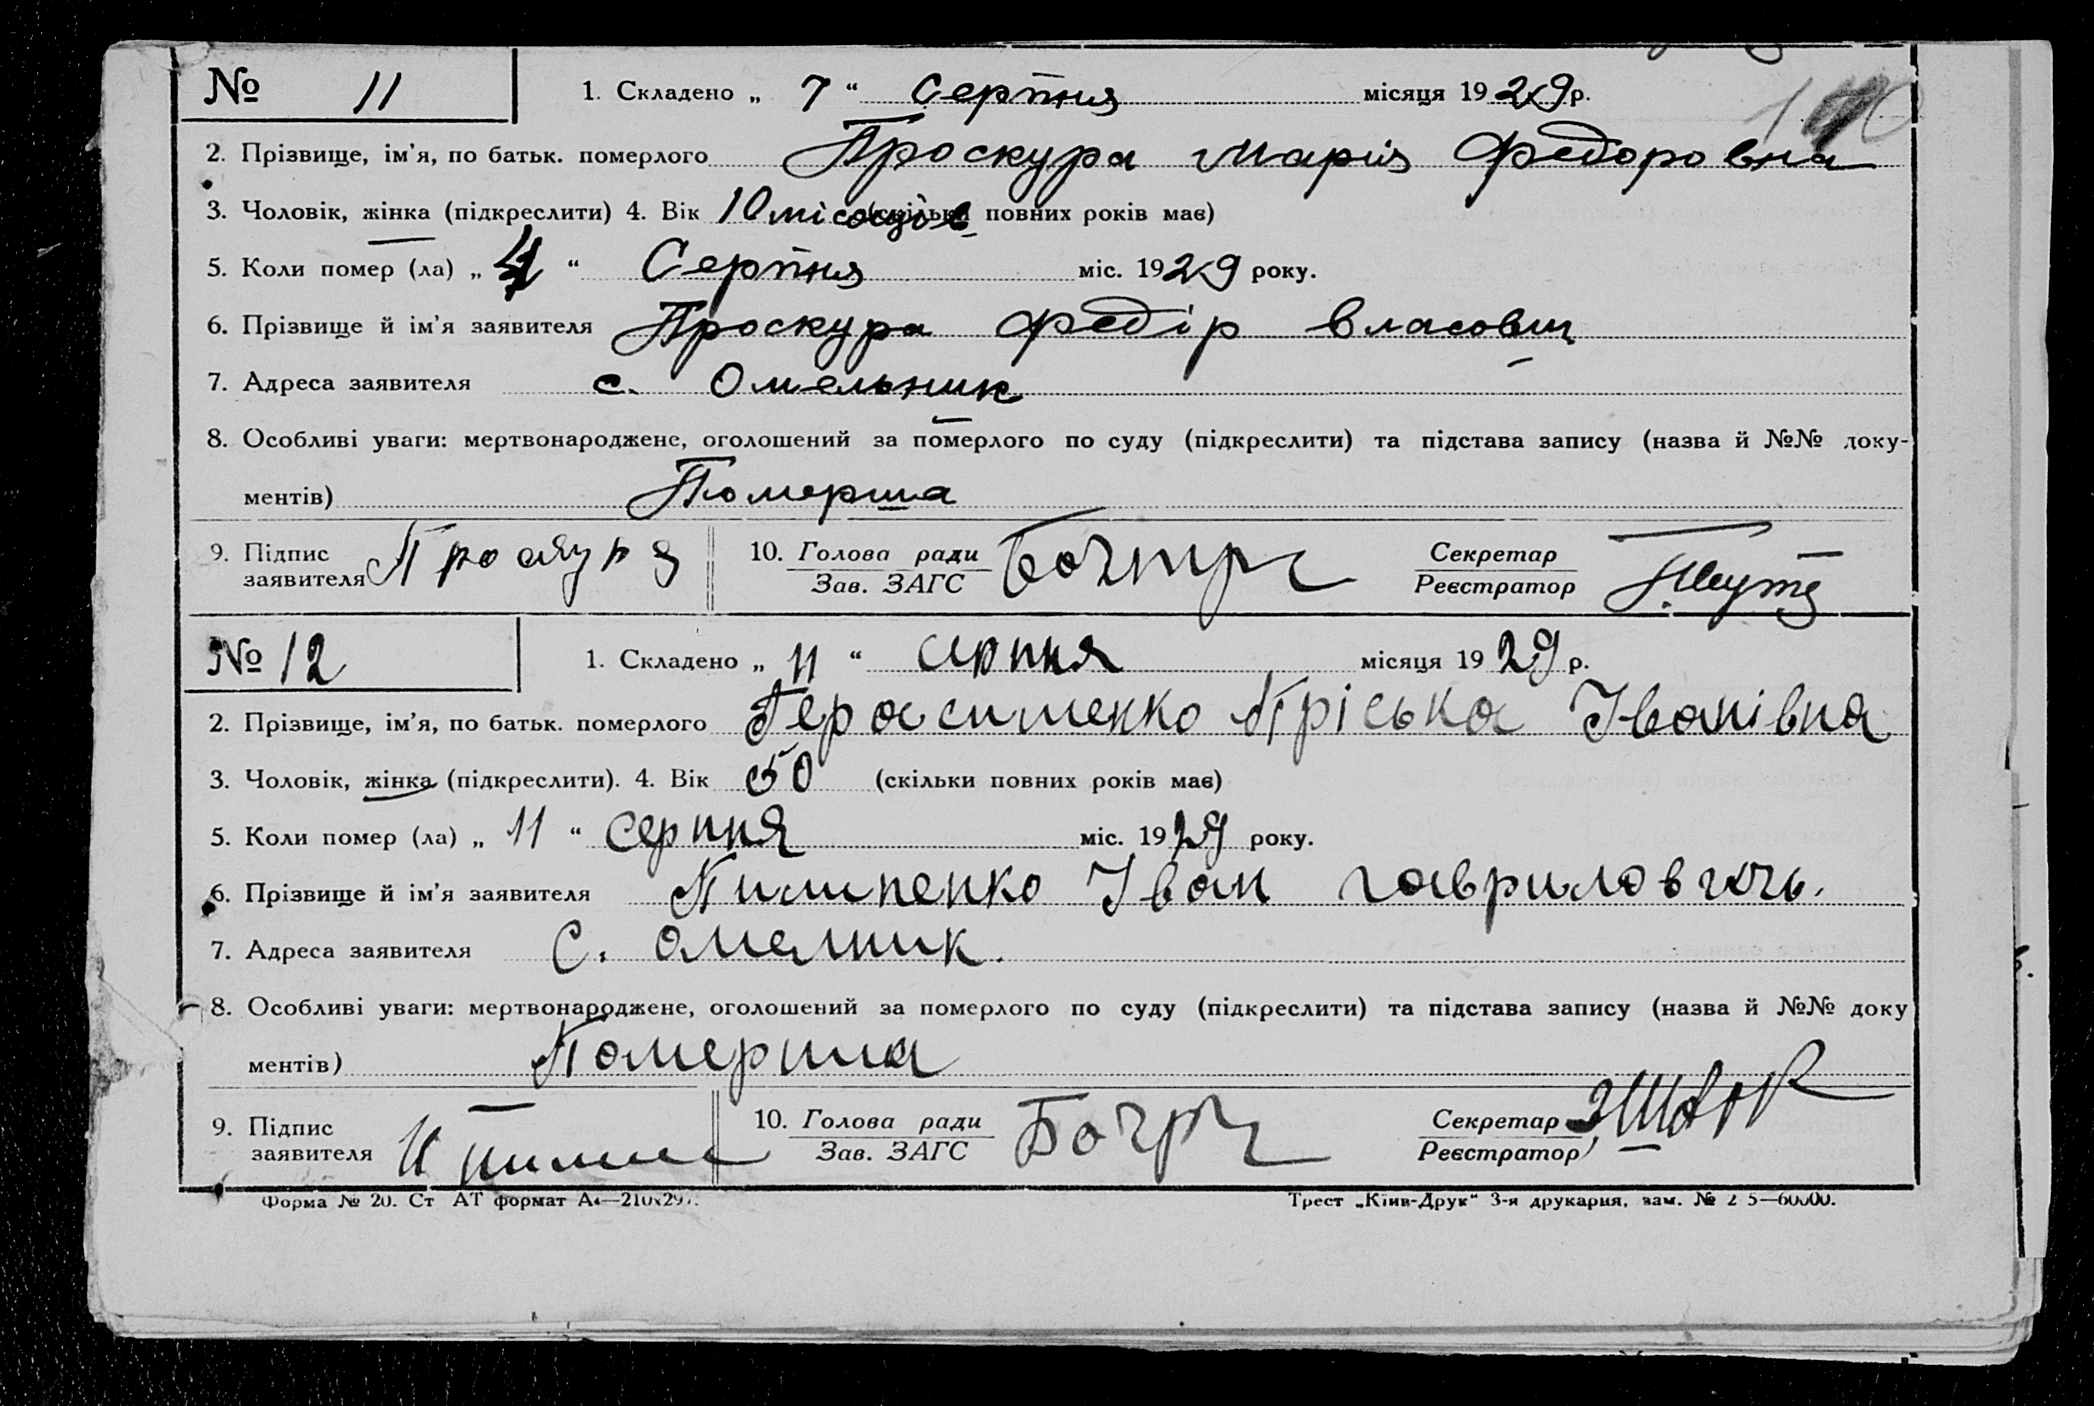 № 11 1. Складено „ 7 “ Серпня місяця 1929 р.
2. Прізвище, ім'я, по батьк. померлого Проскура Марія Федоровна
3. Чоловік, жінка (підкреслити) 4. Вік 10 місоців (скільки повних років має)
5. Коли помер (ла) „ 4 “ Серпня міс. 1929 року.
6. Прізвище й ім'я заявителя Проскура Федір Власович
7. Адреса заявителя с. Омельник
8. Особливі уваги: мертвонароджене, оголошений за померлого по суду (підкреслити) та підстава запису (назва й №№ доку-
ментів) Померша
9. Підпис заявителя 10. Голова ради Зав. ЗАГС Секретар Реєстратор
№ 12 1. Складено „ 11 “ серпня місяця 1929 р.
2. Прізвище, ім'я, по батьк. померлого Герасименко Пріська Іванівна
3. Чоловік, жінка (підкреслити). 4. Вік 50 (скільки повних років має)
5. Коли помер (ла) „ 11 “ серпня міс. 1929 року.
6. Прізвище й ім'я заявителя Пилипенко Іван гавриловичь.
7. Адреса заявителя С. Омелник.
8. Особливі уваги: мертвонароджене, оголошений за померлого по суду (підкреслити) та підстава запису (назва й №№ доку
ментів) Померша
9. Підпис заявителя 10. Голова ради Зав. ЗАГС Секретар Реєстратор
Форма № 20. Ст АТ формат А4—210х297. Трест „Київ-Друк“ 3-я друкарня, зам. № 2 5—60000.